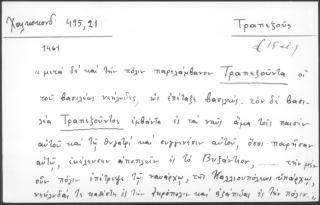 Χαλκοκονδ 495,21
Τραπεζοῦς
(15 αἰ.)
1461
« μετὰ δὲ καὶ τὴν πόλιν παρελάμβανον Τραπεζοῦντα οἱ
τοῦ βασιλέως νεήλυδες, ὡς ἐπέταξε βασιλεύς. τὸν δὲ βασι-
λέα Τραπεζοῦντος ἐμβάντα ἐς τὰς ναῦς ἅμα τοῖς παισὶν
αὐτοῦ καὶ τῇ θυγατρὶ καὶ συγγενέσιν αὐτοῦ, ὅσοι παρῆσαν
αὐτῷ, ἐκέλευσεν ἀποπλεῖν ἐς τὸ Βυζάντιον, ........ τὴν μὲν
οὖν πόλιν ἐπέτρεψε τῷ ναυάρχῳ, τῷ Καλλιουπόλεως ὑπάρχῳ,
νεήλυδάς τε κατέστη ἐς τὴν ἀκρόπολιν καὶ ἀζάπιδας ἐς τὴν πόλιν »